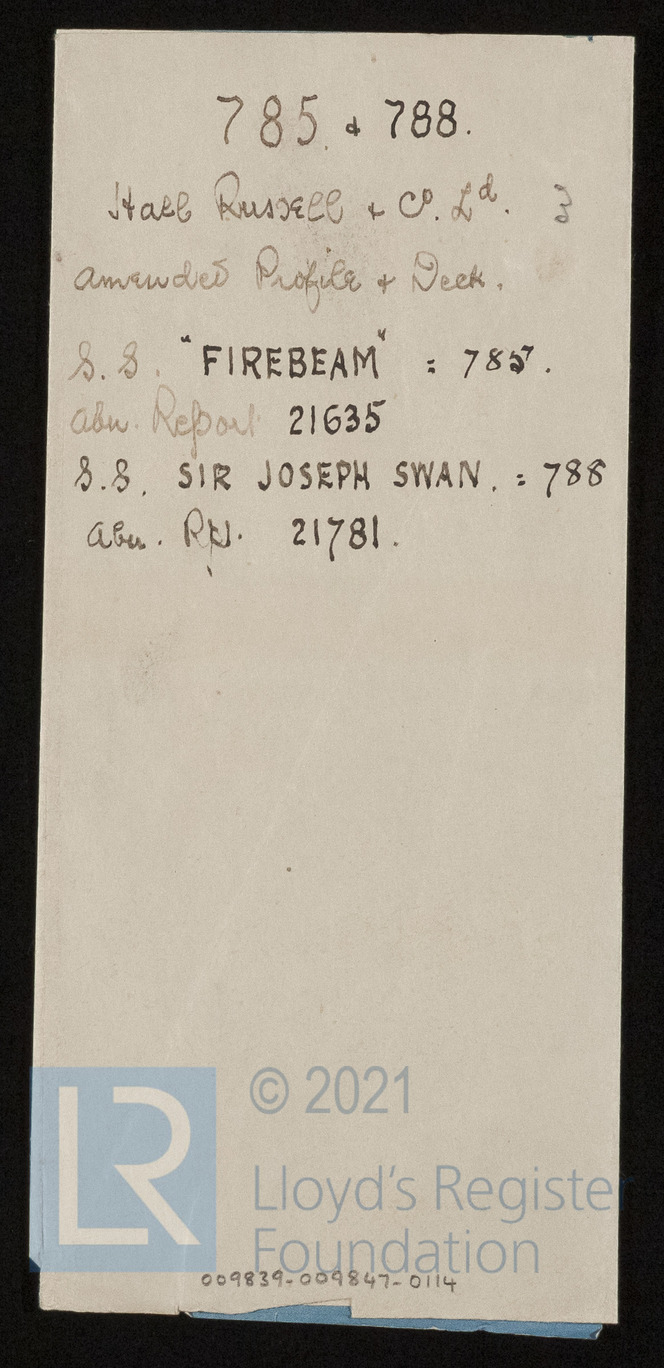 785. & 788.
Hall Russell & Co. Ld. 3
Amended Profile & Deck.
S.S. "FIREBEAM" = 785.
Abn. Report 21635
S.S. SIR JOSEPH SWAN. = 788
Abn. Rpt. 21781.
LR
© 2021
Lloyd's Register
Foundation
009839-009847-0114